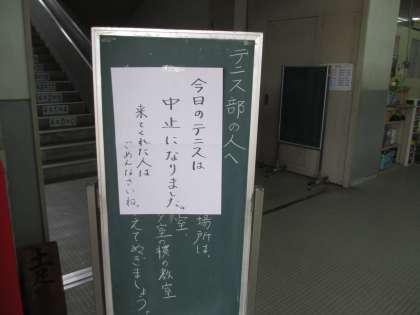 テニス部の人へ
今日のテニスは
中止になりました。
来てくれた人は
ごめんなさいね。
場所は、
室、
室の横の教室
えてぬぎましょう。